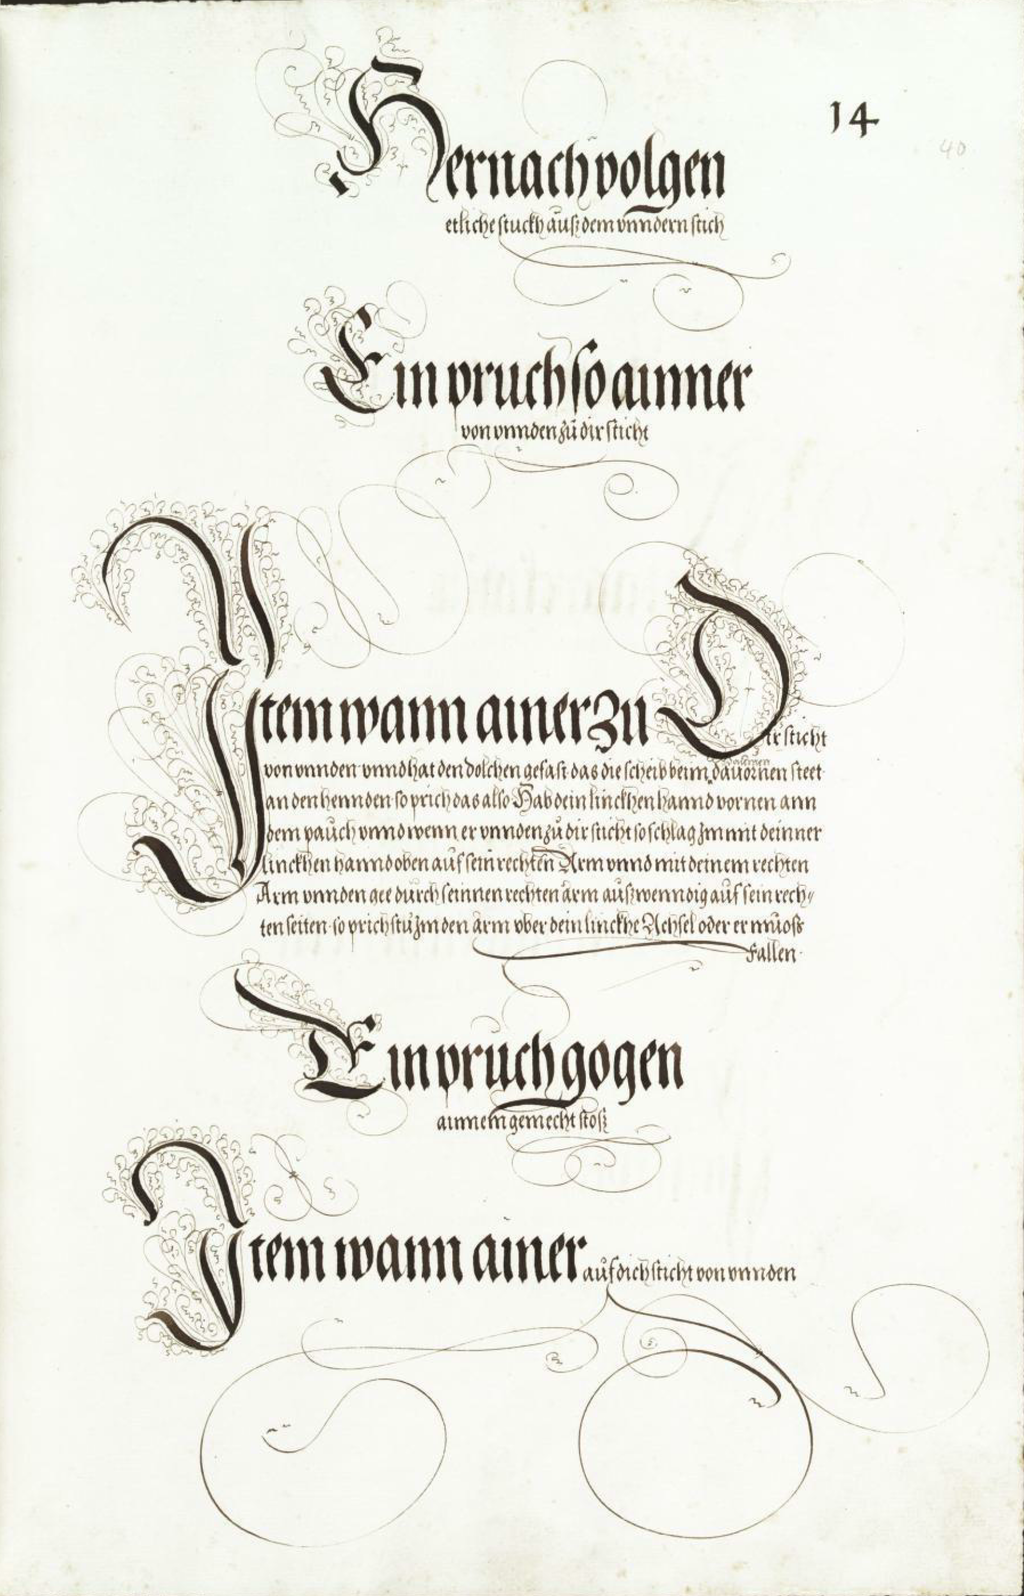 14
40
Hernach volgen
etliche stuckh auß dem vnndern stich
Ein pruch so ainner
von vnnden zu dir sticht
Item wann ainer zu Dir sticht
von vnnden vnnd hat den dolchen gefast das die scheib beim daumen vornen steet
an den hennden so prich das also Hab dein linckhen hannd vornen ann
dem pauch vnnd wenn er vnnden zu dir sticht so schlag Im mit deinner
linckhen hannd oben auf sein rechten Arm vnnd mit deinem rechten
Arm vnnden gee durch seinnen rechten arm außwenndig auf sein rech-
ten seiten so prichstu Im den arm vber dein linckhe Achsel oder er muoß
Fallen
Ein pruch gogen
ainnem gemecht stoß
Item wann ainer auf dich sticht von vnnden